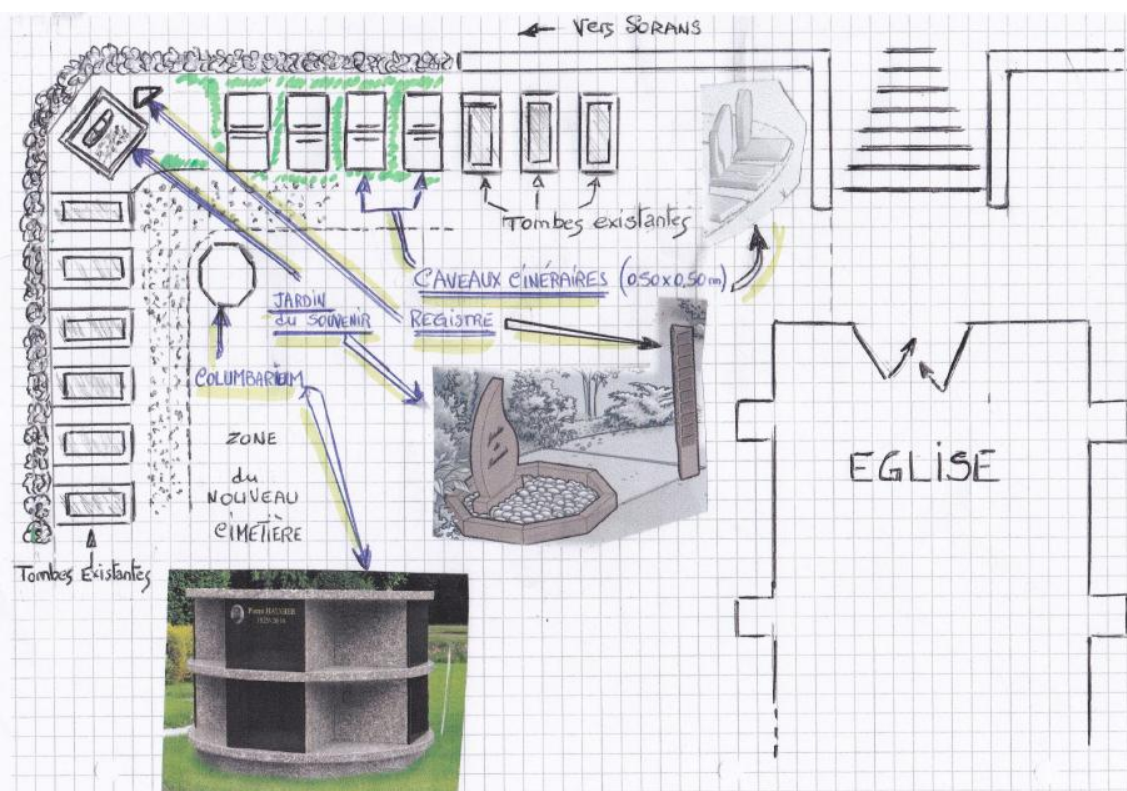 ← Vers SORANS
Tombes existantes
CAVEAUX CINÉRAIRES (0,50x0,50m)
JARDIN
du SOUVENIR
REGISTRE
COLUMBARIUM
ZONE
du
NOUVEAU
CIMETIÈRE
EGLISE
Tombes Existantes